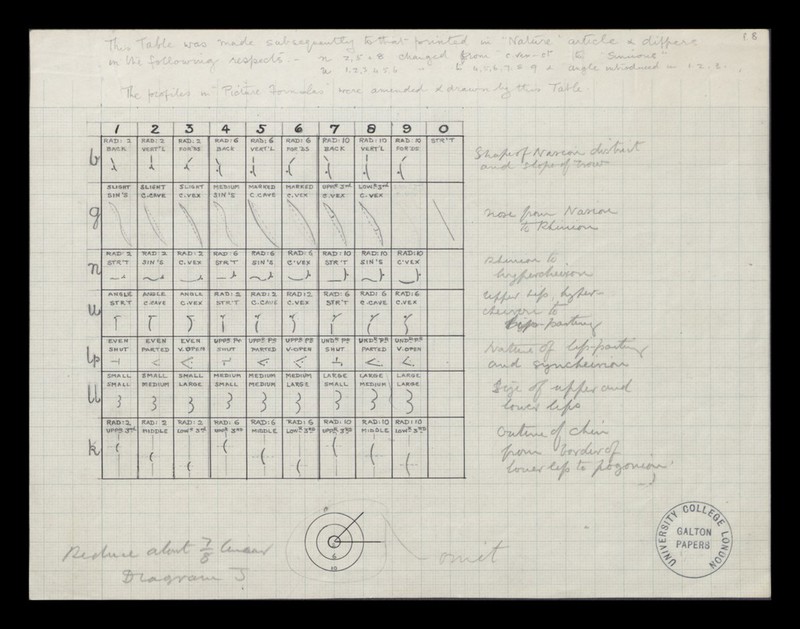 18
This Table was made subsequently to that printed in "Nature" article & differs
in the following respects. – n 2, 5 & 8 changed from c.vex-st to Sinuous"
u 1.2.3.4.5.6 " 4,5,6,7,8,9 & angle introduced in 1.2.3.
The profiles in "Picture Formulas" were amended & drawn by this Table.
1 2 3 4 5 6 7 8 9 0
b
RAD: 2 RAD: 2 RAD: 2 RAD: 6 RAD: 6 RAD: 6 RAD: 10 RAD: 10 RAD: 10 STR'T
BACK VERT'L FOR'DS BACK VERT'L FOR'DS BACK VERT'L FOR'DS
Shape of Nasion district
and slope of brow
g
SLIGHT SLIGHT SLIGHT MEDIUM MARKED MARKED UPPR 3RD LOWR 3RD
SIN'S C.CAVE C.VEX SIN'S C.CAVE C.VEX C.VEX C.VEX
nose from Nasion
to Rhinion
n
RAD: 2 RAD: 2 RAD: 2 RAD: 6 RAD: 6 RAD: 6 RAD: 10 RAD: 10 RAD: 10
STR'T SIN'S C.VEX STR'T SIN'S C'VEX STR'T SIN'S C'VEX
Rhinion to
hypercheinon
u
ANGLE ANGLE ANGLE RAD: 2 RAD: 2 RAD: 2 RAD: 6 RAD: 6 RAD: 6
STR'T C.CAVE C.VEX STR'T C.CAVE C.VEX STR'T C.CAVE C.VEX
upper lip, hyper-
cheinon to
lip-parting
lp
EVEN EVEN EVEN UPPR PG UPPR PG UPPR PG UNDR PG UNDR PG UNDR PG
SHUT PARTED V.OPEN SHUT PARTED V.OPEN SHUT PARTED V.OPEN
Nature of lip-parting
and syncheinon
ll
SMALL SMALL SMALL MEDIUM MEDIUM MEDIUM LARGE LARGE LARGE
SMALL MEDIUM LARGE SMALL MEDIUM LARGE SMALL MEDIUM LARGE
Size of upper and
lower lips
k
RAD: 2 RAD: 2 RAD: 2 RAD: 6 RAD: 6 RAD: 6 RAD: 10 RAD: 10 RAD: 10
UPPR 3RD MIDDLE LOWR 3RD UPPR 3RD MIDDLE LOWR 3RD UPPR 3RD MIDDLE LOWR 3RD
Outline of chin
from border of
lower lip to pogonion
2
6
10
Reduce about 7/8 linear
Diagram J
omit
UNIVERSITY COLLEGE LONDON
GALTON
PAPERS